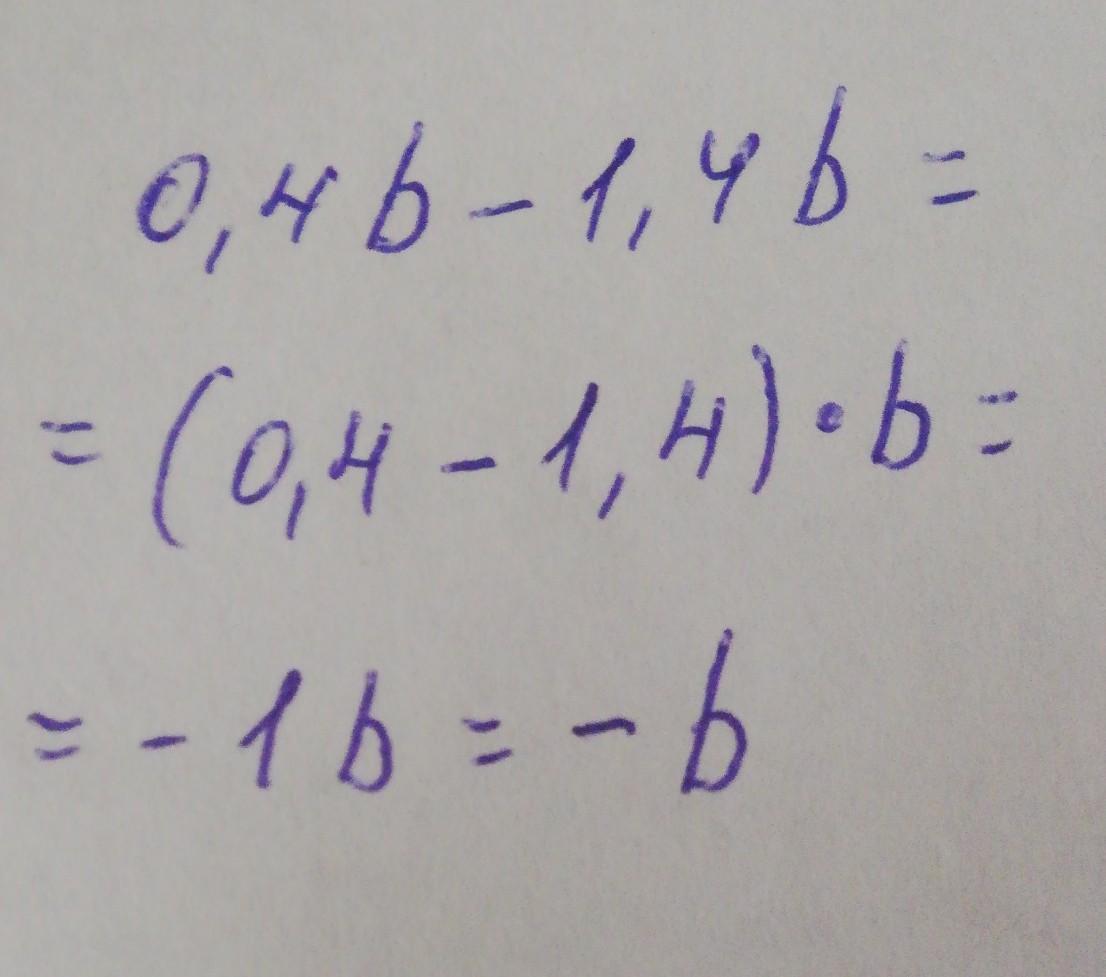 0,4b - 1,4b =
= (0,4 - 1,4) · b =
= - 1b = - b